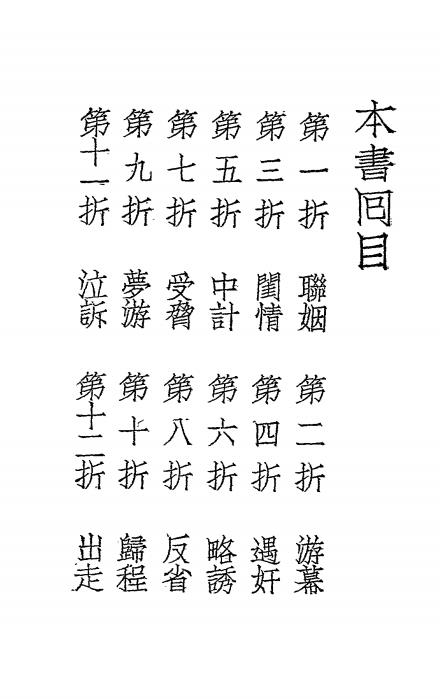 本書囘目
第一折 聯姻 第二折 游幕
第三折 閨情 第四折 遇奸
第五折 中計 第六折 略誘
第七折 受脅 第八折 反省
第九折 夢游 第十折 歸程
第十一折 泣訴 第十二折 出走